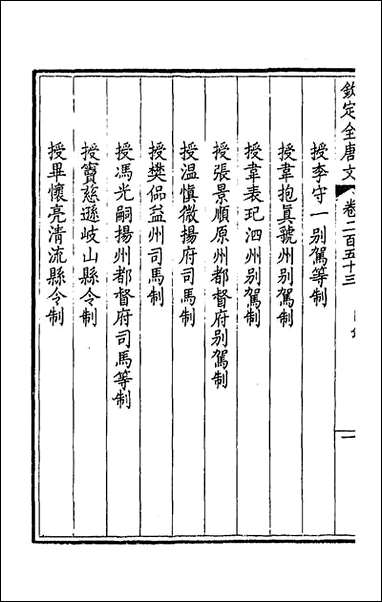 欽定全唐文 卷二百五十三 一
授李守一別駕等制
授韋抱眞號州別駕制
授韋表玘泗州別駕制
授張景順原州都督府別駕制
授温愼微揚府司馬制
授樊偘益州司馬制
授馮光嗣揚州都督府司馬等制
授竇慈遜岐山縣令制
授畢懷亮清流縣令制